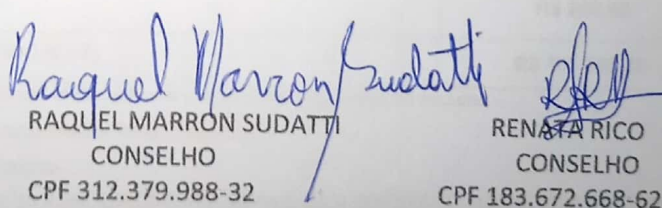 Raquel Marron Sudatti
RAQUEL MARRON SUDATTI
CONSELHO
CPF 312.379.988-32
RENATA RICO
CONSELHO
CPF 183.672.668-62